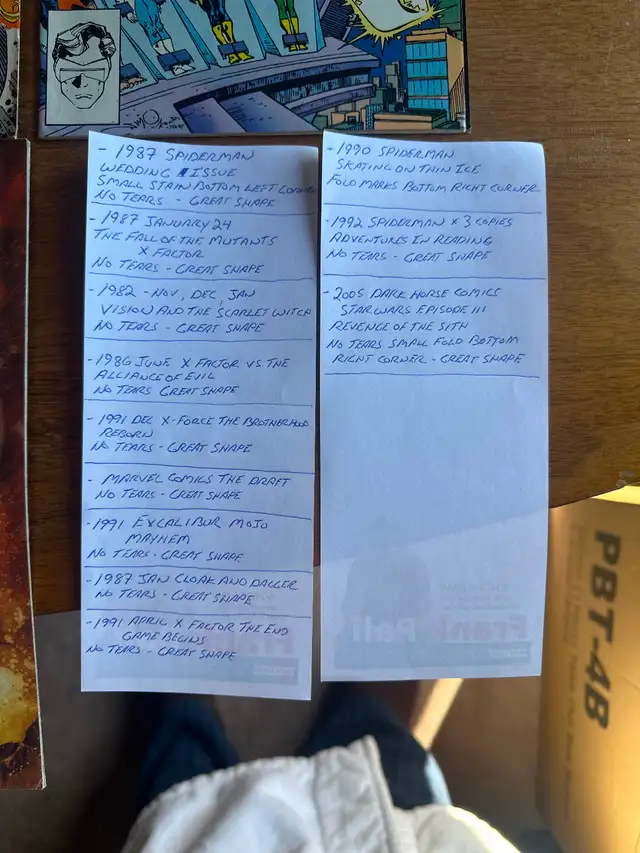 - 1987 SPIDERMAN
WEDDING ISSUE
SMALL STAIN BOTTOM LEFT CORNER
NO TEARS - GREAT SHAPE
- 1987 JANUARY 24
THE FALL OF THE MUTANTS
X FACTOR
NO TEARS - GREAT SHAPE
- 1982 - NOV, DEC, JAN
VISION AND THE SCARLET WITCH
NO TEARS - GREAT SHAPE
- 1986 JUNE X FACTOR VS THE
ALLIANCE OF EVIL
NO TEARS GREAT SHAPE
- 1991 DEC X-FORCE THE BROTHERHOOD
REBORN
NO TEARS - GREAT SHAPE
- MARVEL COMICS THE DRAFT
NO TEARS - GREAT SHAPE
- 1991 EXCALIBUR MOJO
MAYHEM
NO TEARS - GREAT SHAPE
- 1987 JAN CLOAK AND DAGGER
NO TEARS - GREAT SHAPE
- 1991 APRIL X FACTOR THE END
GAME BEGINS
NO TEARS - GREAT SHAPE
- 1990 SPIDERMAN
SKATING ON THIN ICE
FOLD MARKS BOTTOM RIGHT CORNER
- 1992 SPIDERMAN X 3 COPIES
ADVENTURES IN READING
NO TEARS - GREAT SHAPE
- 2005 DARK HORSE COMICS
STAR WARS EPISODE III
REVENGE OF THE SITH
NO TEARS SMALL FOLD BOTTOM
RIGHT CORNER - GREAT SHAPE
PBT-4B